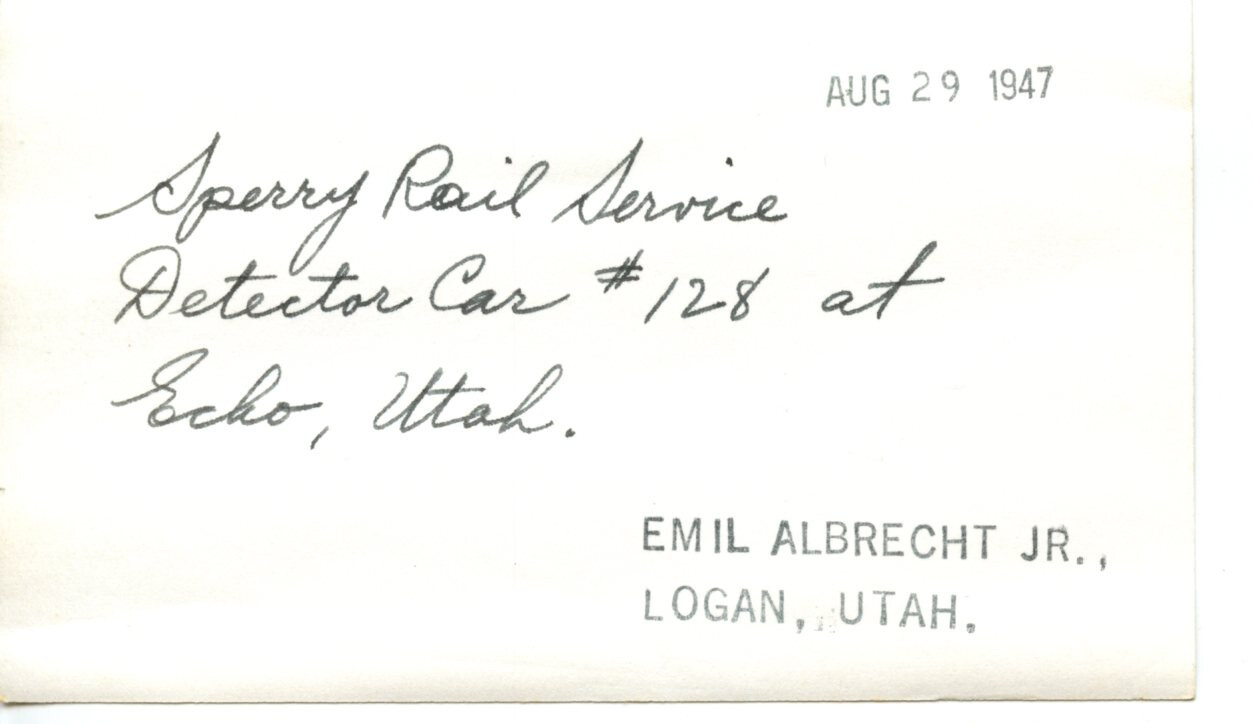 AUG 29 1947
Sperry Rail Service
Detector Car #128 at
Echo, Utah.
EMIL ALBRECHT JR.,
LOGAN, UTAH.